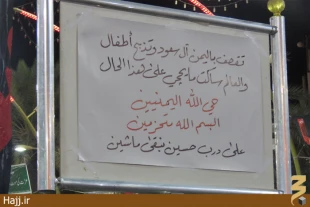 تقصف باليمن آل سعود وتذبح أطفال
والعالم ساكت ما يحجي على هذا الحال
حي الله اليمنيين
البسم الله متحزمين
على درب حسين نبقى ماشين
Hajj.ir
Hajj.ir